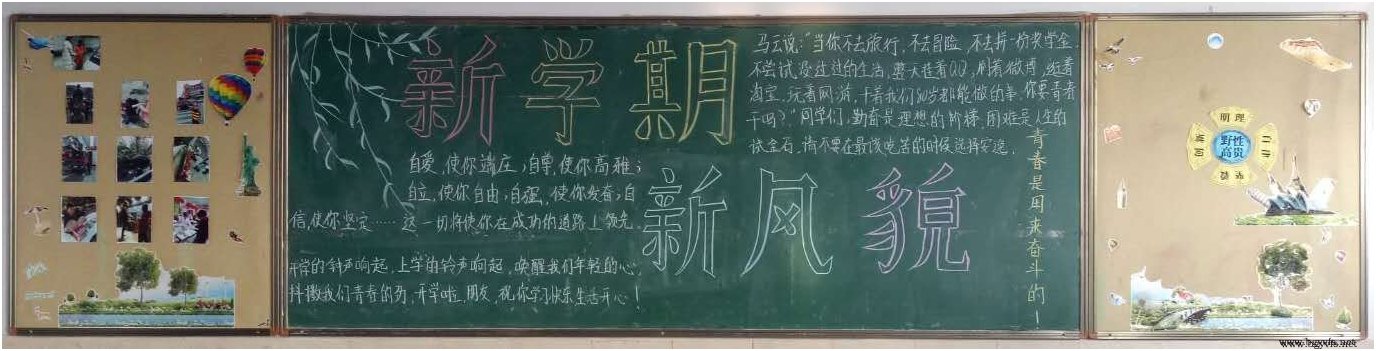 新学期
新风貌
马云说:"当你不去旅行,不去冒险,不去拼一份奖学金,
不尝试没过过的生活,整天挂着QQ,刷着微博,逛着
淘宝,玩着网游,干着我们80岁都能做的事,你要青春
干吗?"同学们,勤奋是理想的阶梯,困难是人生的
试金石,请不要在最该吃苦的时候选择安逸.
自爱,使你端庄;自尊,使你高雅;
自立,使你自由;自强,使你发奋;自
信,使你坚定……这一切将使你在成功的道路上领先.
开学的钟声响起,上学的铃声响起,唤醒我们年轻的心,
抖擞我们青春的劲,开学啦,朋友,祝你学习快乐生活开心!
青春是用来奋斗的!
明理
野性
高贵